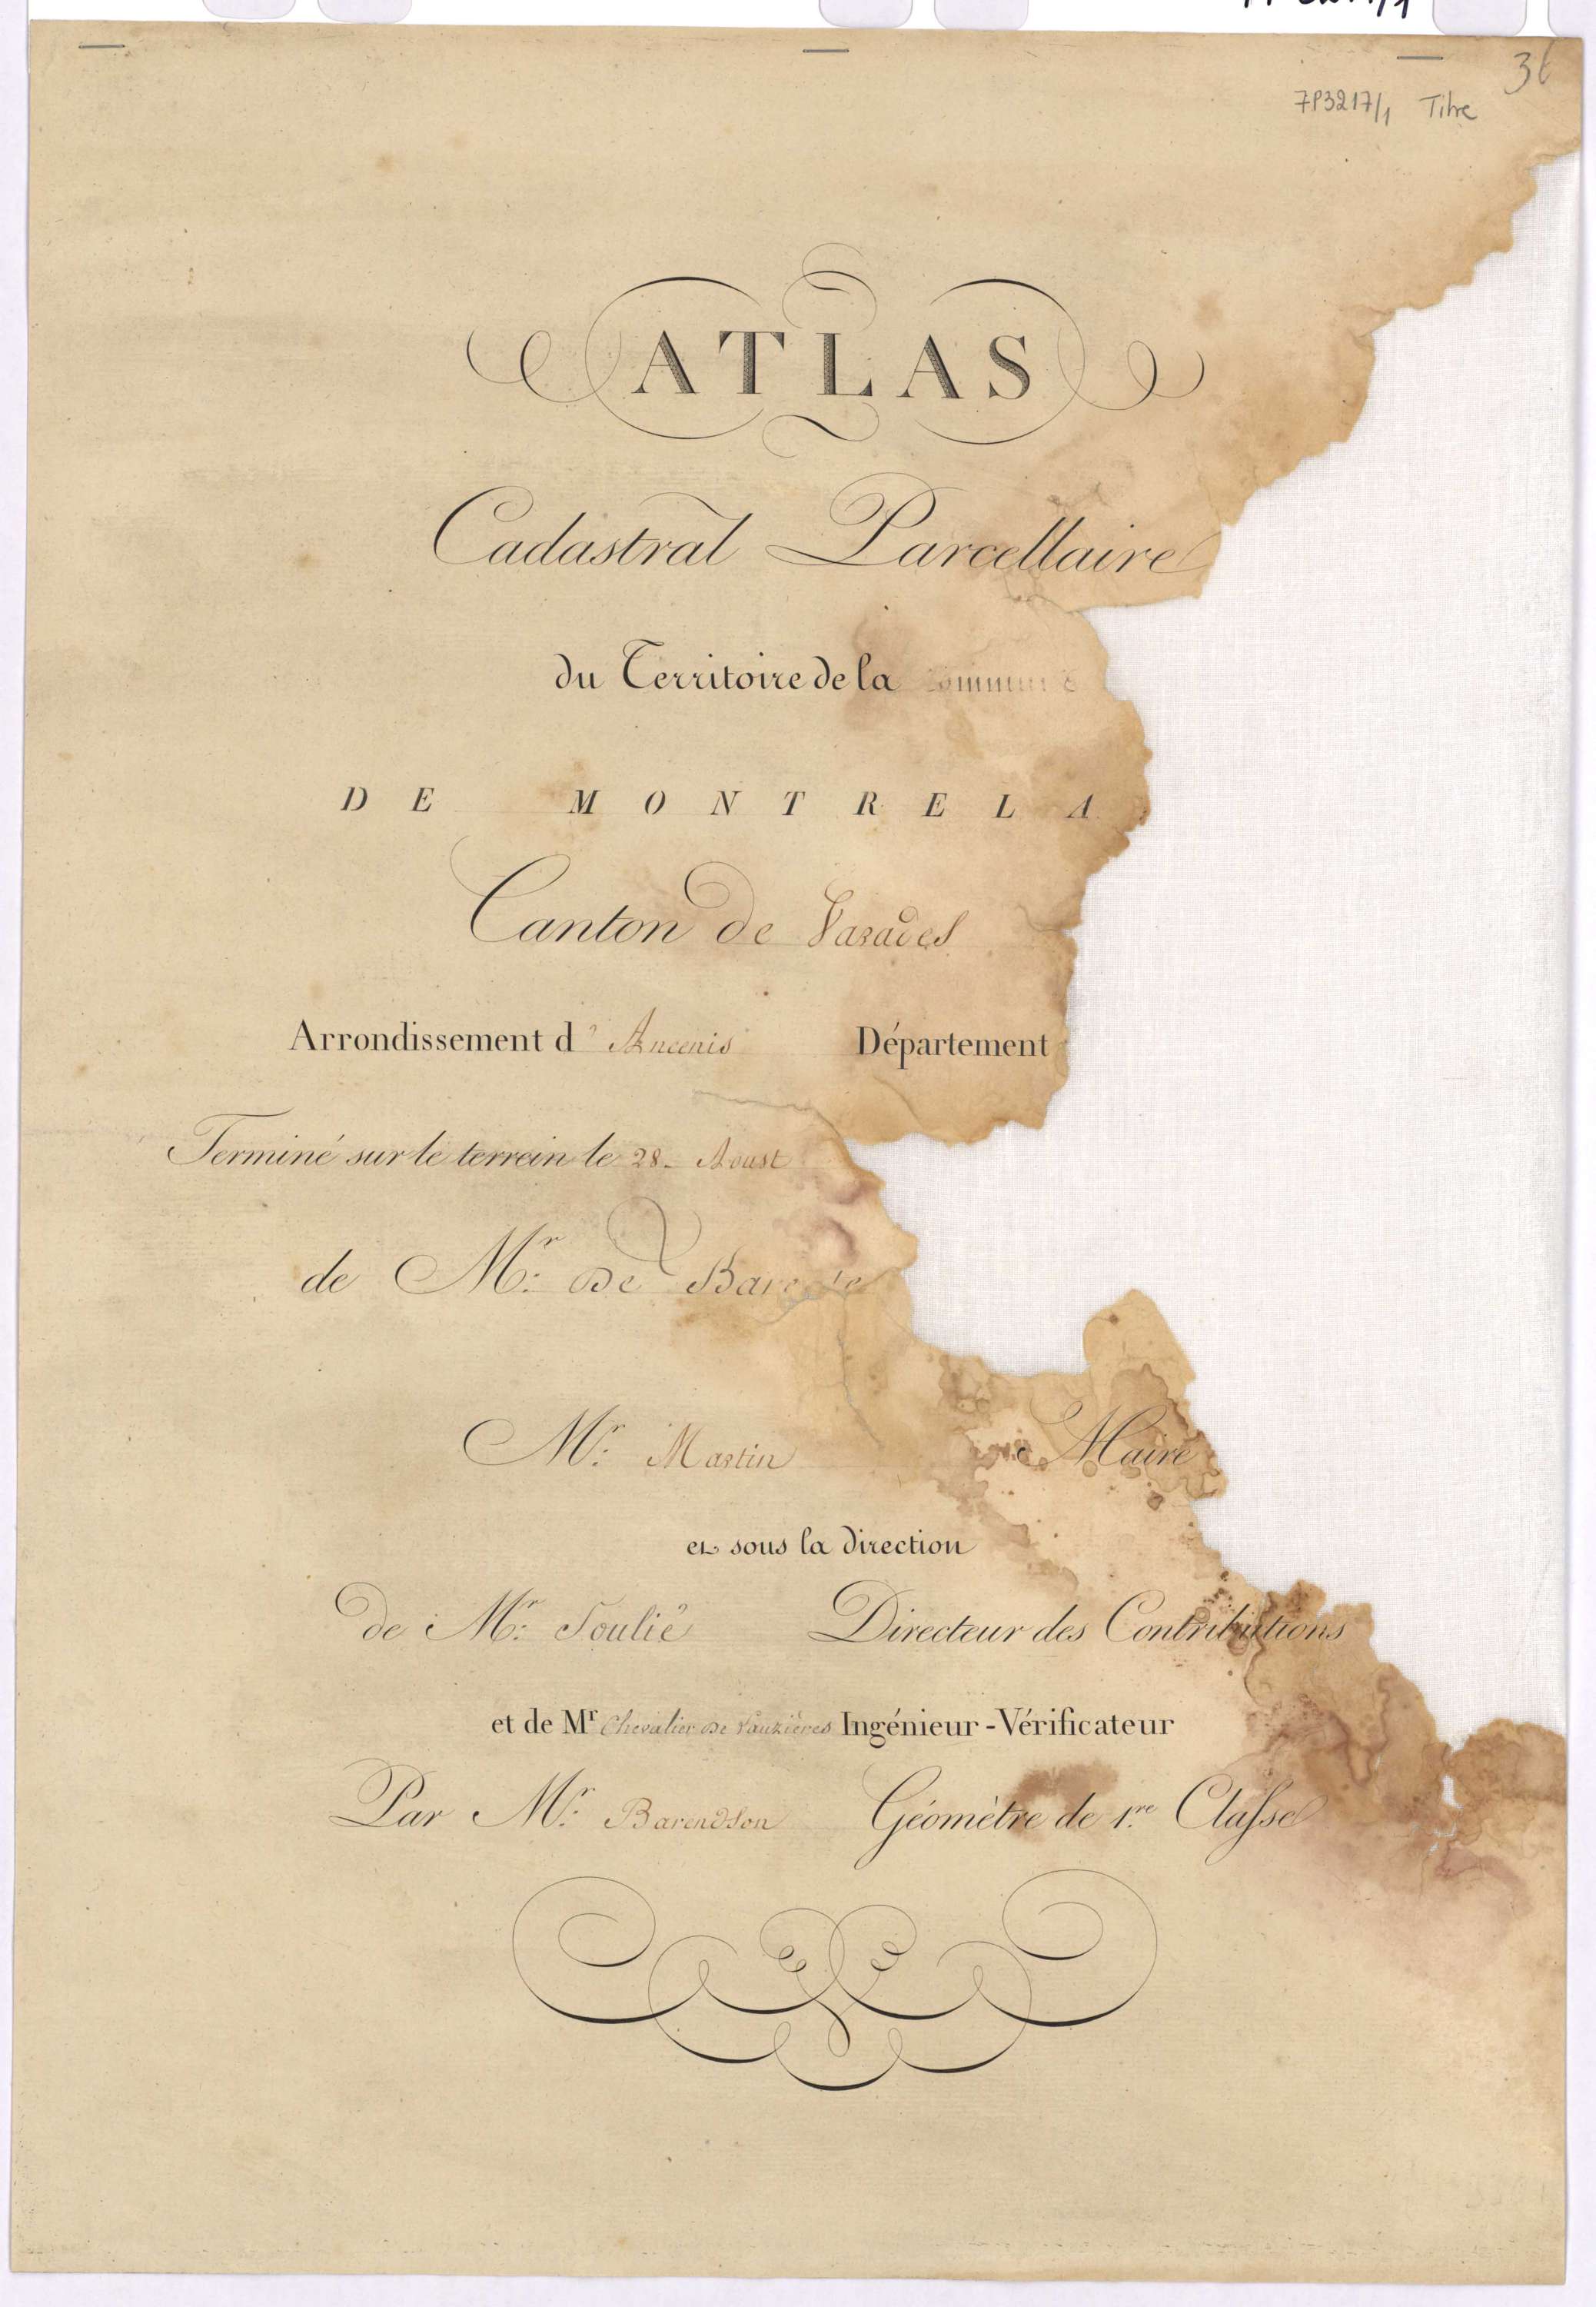 36
7P3217/1 Titre
ATLAS
Cadastral Parcellaire
du Territoire de la Commune
DE MONTRELA
Canton de Varades
Arrondissement d' Ancenis Département
Terminé sur le terrein le 28. Aoust
de Mr. De Barente
Mr. Martin Maire
et sous la direction
de Mr. Soulié Directeur des Contributions
et de Mr Chevalier De Vauzières Ingénieur-Vérificateur
Par Mr. Barendson Géomètre de 1.re Claſse